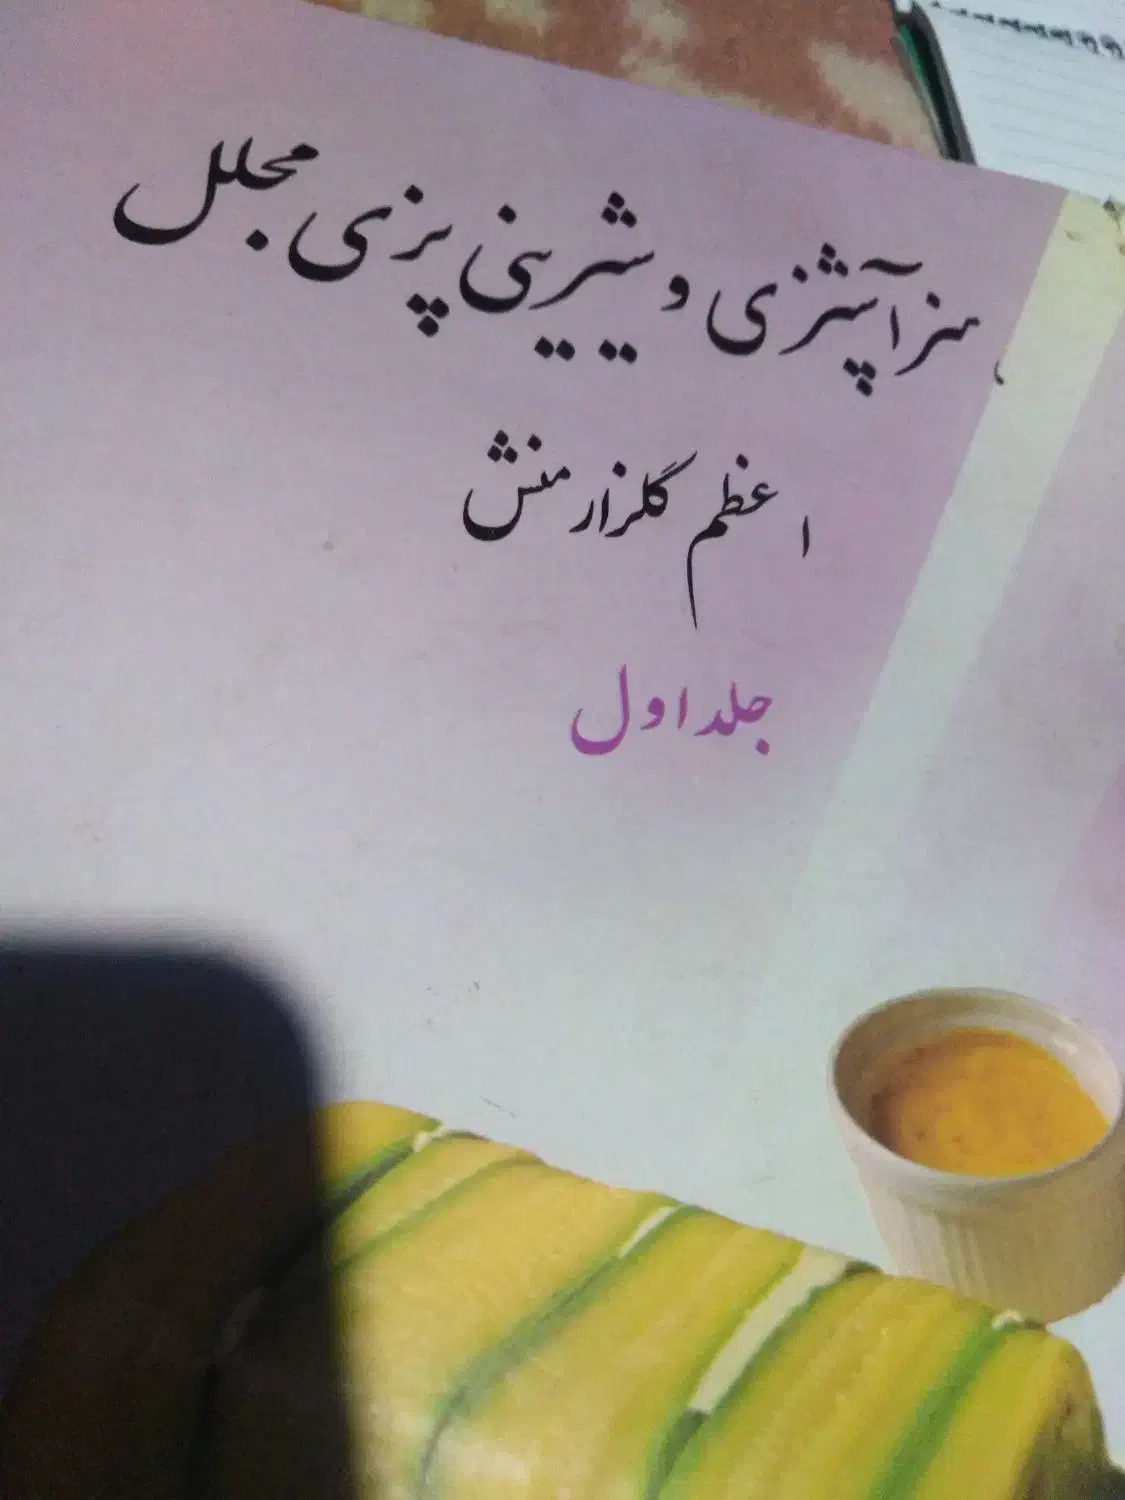 هنر آشپزی و شیرینی پزی مجلل
اعظم گلزار منش
جلد اول